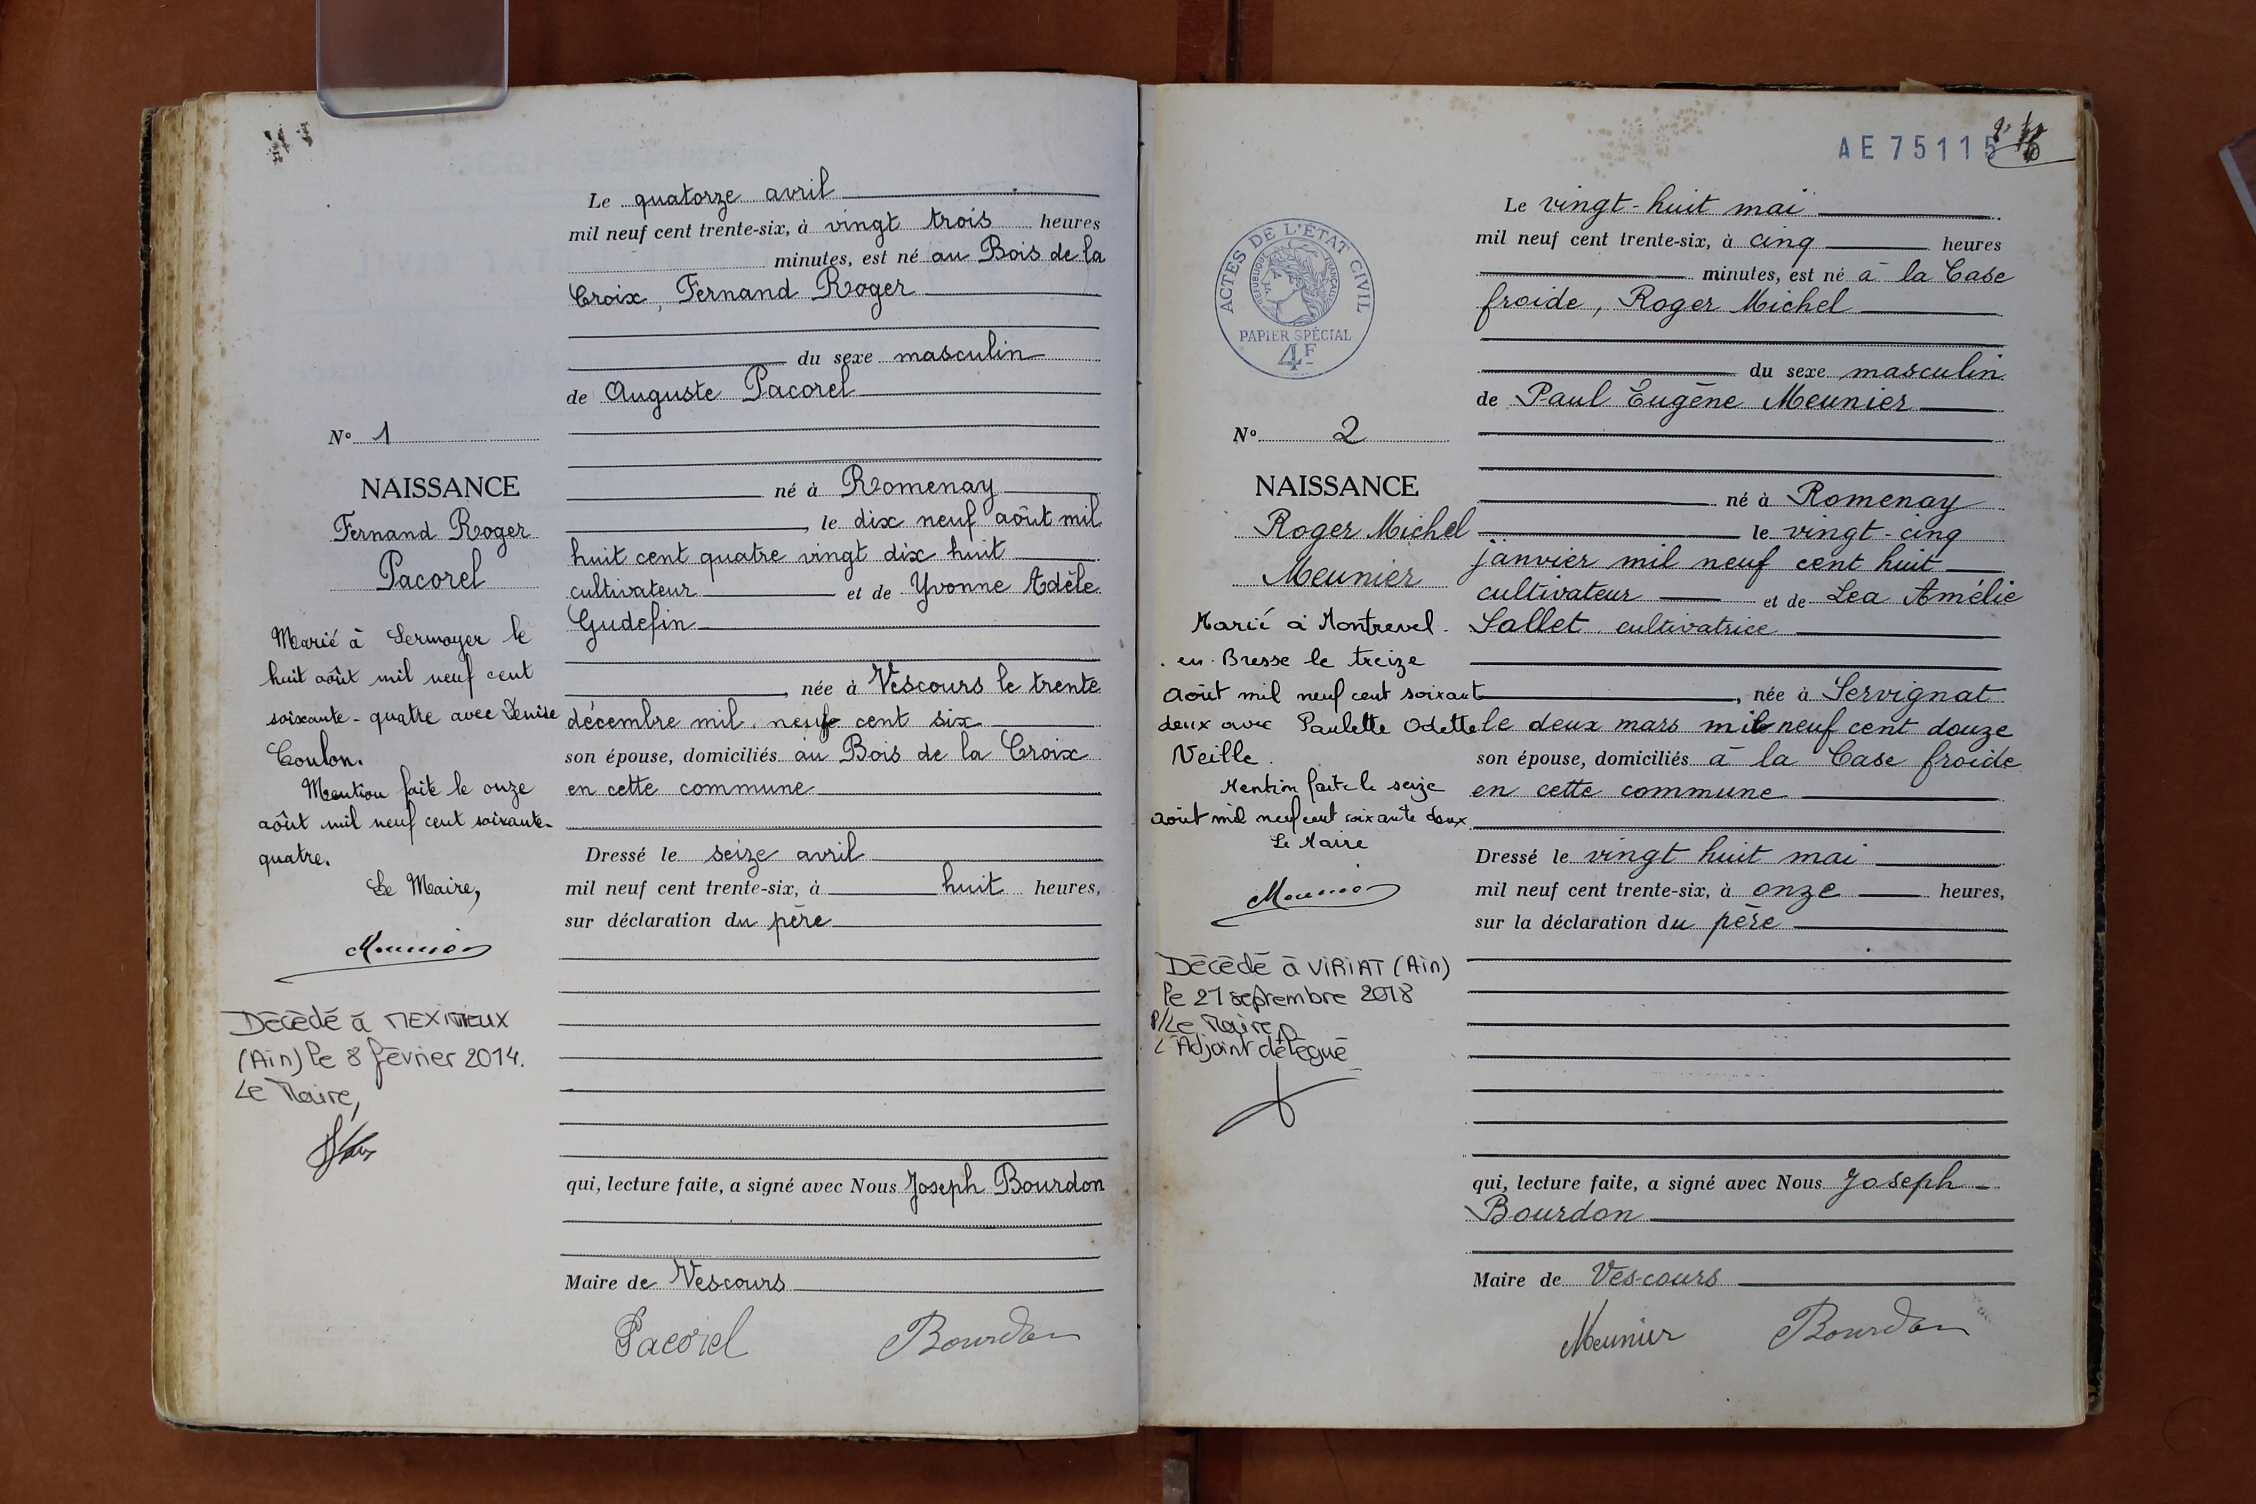 Le quatorze avril
mil neuf cent trente-six, à vingt trois heures
minutes, est né au Bois de la
Croix, Fernand Roger
du sexe masculin
de Auguste Pacorel
N° 1
NAISSANCE
Fernand Roger
Pacorel
né à Romenay
, le dix neuf août mil
huit cent quatre vingt dix huit
cultivateur et de Yvonne Adèle
Gudefin
, née à Vescours le trente
décembre mil neuf cent six
son épouse, domiciliés au Bois de la Croix
en cette commune
Dressé le seize avril
mil neuf cent trente-six, à huit heures,
sur déclaration du père
qui, lecture faite, a signé avec Nous Joseph Bourdon
Maire de Vescours
Pacorel Bourdon
Marié à Sermoyer le
huit août mil neuf cent
soixante-quatre avec Denise
Coulon.
Mention faite le onze
août mil neuf cent soixante-
quatre.
Le Maire,
Meunier
Décédé à MEXIMIEUX
(Ain) le 8 février 2014.
Le Maire,
AE 75115
Le vingt-huit mai
mil neuf cent trente-six, à cinq heures
minutes, est né à la Case
froide, Roger Michel
du sexe masculin
de Paul Eugène Meunier
ACTES DE L'ÉTAT CIVIL
RÉPUBLIQUE FRANÇAISE
PAPIER SPÉCIAL
4F
N° 2
NAISSANCE
Roger Michel
Meunier
né à Romenay
le vingt-cinq
janvier mil neuf cent huit
cultivateur et de Lea Amélie
Sallet cultivatrice
, née à Servignat
le deux mars mil neuf cent douze
son épouse, domiciliés à la Case froide
en cette commune
Dressé le vingt huit mai
mil neuf cent trente-six, à onze heures,
sur la déclaration du père
qui, lecture faite, a signé avec Nous Joseph
Bourdon
Maire de Vescours
Meunier Bourdon
Marié à Montrevel-
en-Bresse le treize
août mil neuf cent soixant
deux avec Paulette Odette
Veille.
Mention faite le seize
août mil neuf cent soixante deux
Le Maire
Meunier
Décédé à VIRIAT (Ain)
le 21 septembre 2018
P/Le Maire,
L'Adjoint délégué